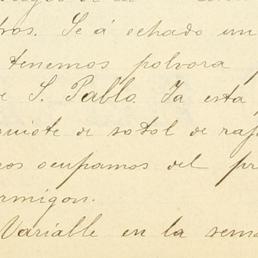 tros. Se á echado un
tenemos polvora
e S. Pablo. Ya está
quiote de sotol de
nos ocupamos del
ormigon.
Variable en la sema